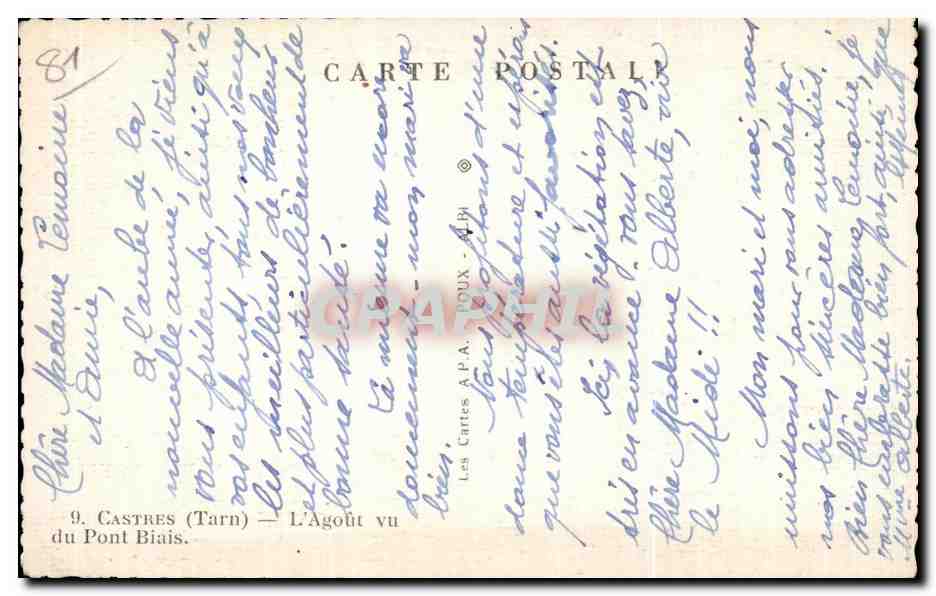 81
CARTE POSTALE
Chère Madame Lemoine
et Amie,
A l'aube de la
nouvelle année, je viens
vous présenter, ainsi qu'à
vos enfants, tous nos vœux
les meilleurs de bonheur
et plus particulièrement de
bonne santé.
La mienne va encore
doucement - mon mari va
bien.
Nous profitons d'une
douce température et
que vous êtes aussi favorisés.
Ici, la végétation est
très en avance, vous savez,
Chère Madame Alberte, vive
le Midi !!
Mon mari et moi, nous
unissons pour vous adresser
nos bien sincères amitiés.
Bien Chère Madame Lemoine, je
vous embrasse bien fort, ainsi que
Mme Alberte.
Les Cartes A.P.A. POUX - ALBI
CPAPHIL
9. CASTRES (Tarn) — L'Agoût vu
du Pont Biais.